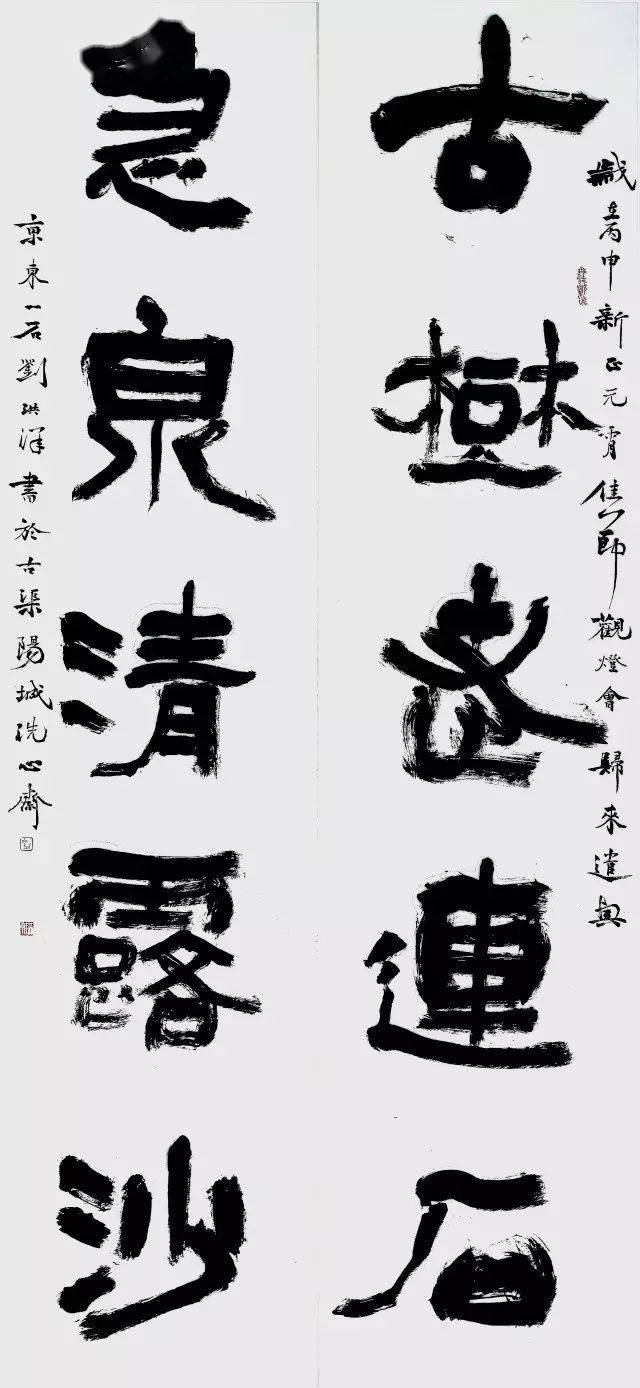 歲在丙申新正元宵佳節觀燈會歸來遣興
古樹老連石
急泉清露沙
京東一石劉洪洋書於古渠陽城洗心齋